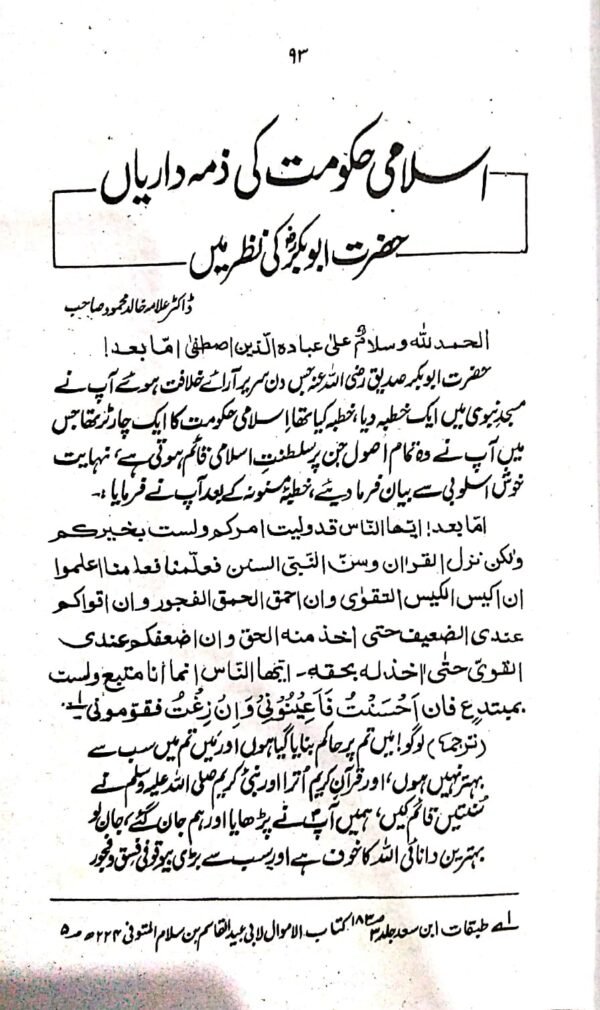 ۹۳
اسلامی حکومت کی ذمہ داریاں
حضرت ابوبکرؓ کی نظر میں
ڈاکٹر علامہ خالد محمود صاحب
الحمد للہ وسلامٌ علیٰ عبادہ الّذین اصطفیٰ امّا بعد!
حضرت ابوبکر صدیق رضی اللہ عنہ جس دن سریر آرائے خلافت ہوئے آپ نے
مسجدِ نبوی میں ایک خطبہ دیا، خطبہ کیا تھا اسلامی حکومت کا ایک چارٹر تھا جس
میں آپ نے وہ تمام اصول جن پر سلطنتِ اسلامی قائم ہوتی ہے، نہایت
خوش اسلوبی سے بیان فرما دیئے، خطبۂ مسنونہ کے بعد آپ نے فرمایا :۔
امّا بعد! ایّھا النّاس قد ولیت امرکم ولست بخیرکم
ولکن نزل القراٰن وسنّ النّبیّ السنن فعلّمنا فعلمنا اعلموا
ان اکیس الکیس التقوٰی وان احمق الحمق الفجور وان اقواکم
عندی الضعیف حتی اخذ منہ الحق وان اضعفکم عندی
القویّ حتّٰی اخذ لہ بحقہ۔ ایّھا النّاس انما أنا متبع ولست
بمبتدعٍ فان اَحْسَنْتُ فَاَعِیْنُوْنِیْ وَاِنْ زِغْتُ فقوّمونی لـہ
(ترجمہ) لوگو! میں تم پر حاکم بنایا گیا ہوں اور میں تم میں سب سے
بہتر نہیں ہوں، اور قرآن کریم اُترا اور نبیٔ کریم صلی اللہ علیہ وسلم نے
سُنتیں قائم کیں، ہمیں آپؐ نے پڑھایا اور ہم جان گئے، جان لو
بہترین دانائی اللہ کا خوف ہے اور سب سے بڑی بیوقوفی فسق و فجور
لـہ طبقات ابن سعد جلد ۳ صـ۱۸۳ کتاب الاموال لابی عبید القاسم بن سلام المتوفی ۲۲۴ھ صـ۵